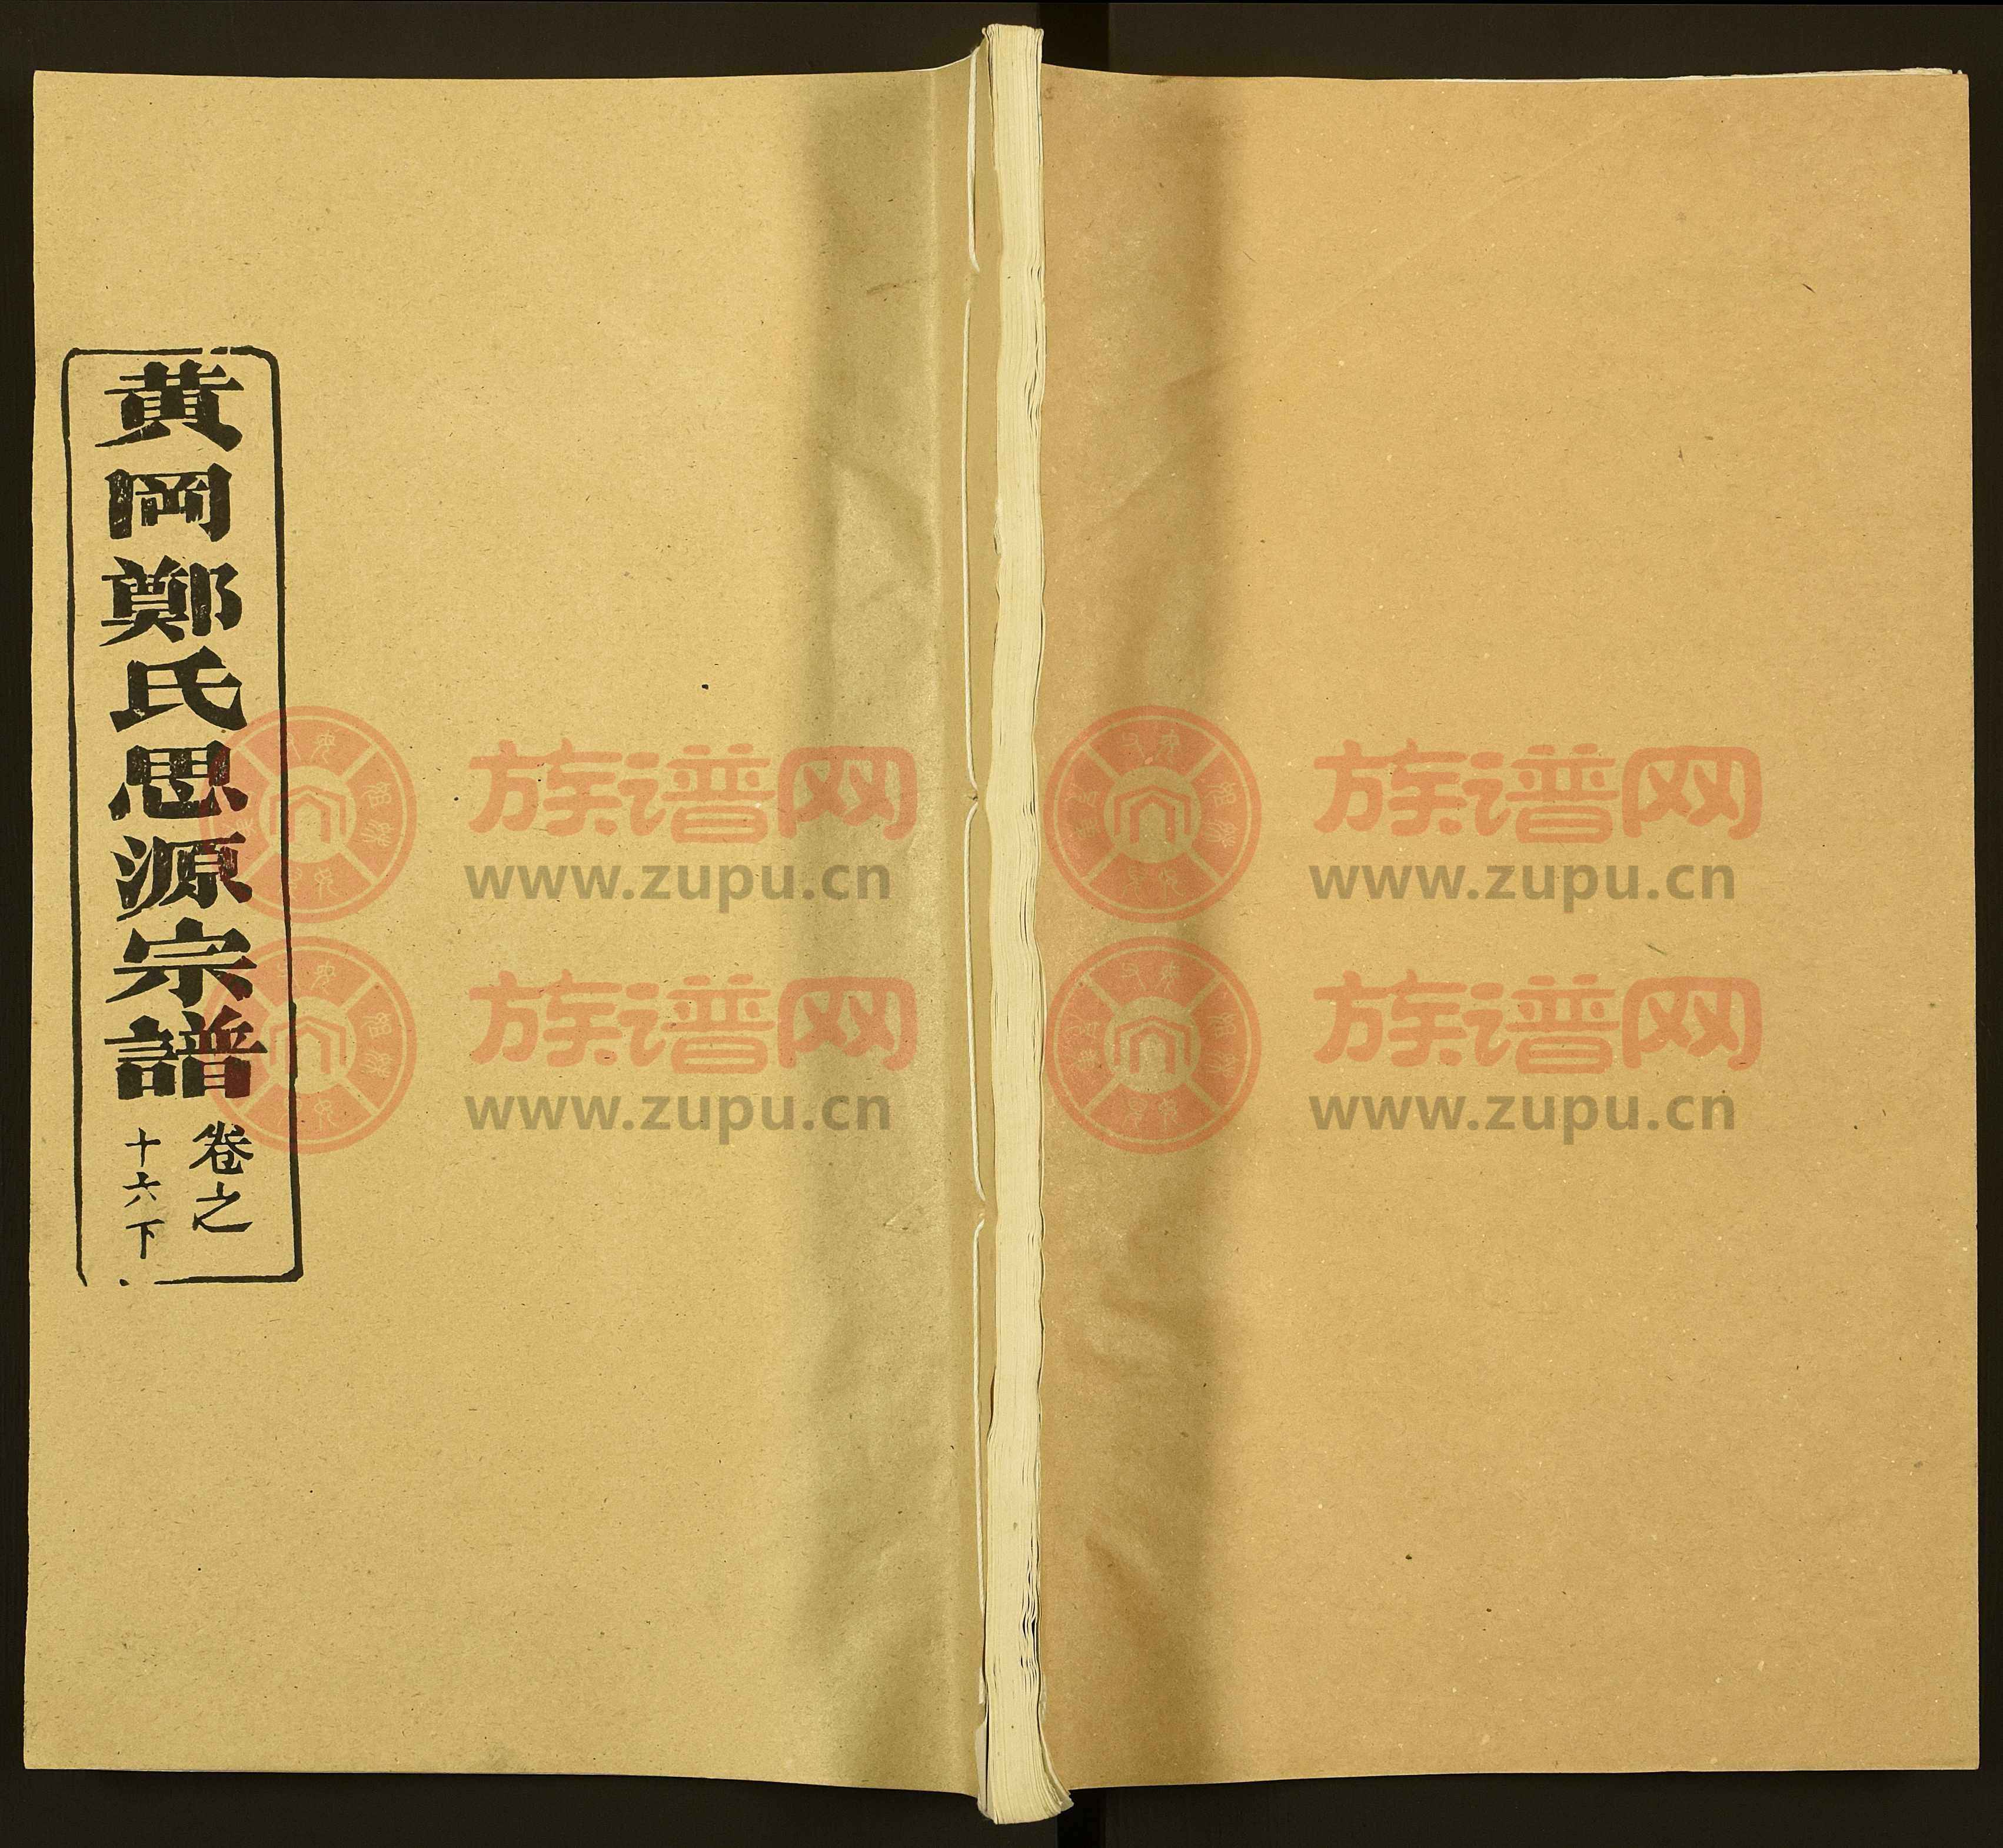 黄岡鄭氏思源宗譜
卷之
十六下
族谱网
www.zupu.cn
族谱网
www.zupu.cn
族谱网
www.zupu.cn
族谱网
www.zupu.cn